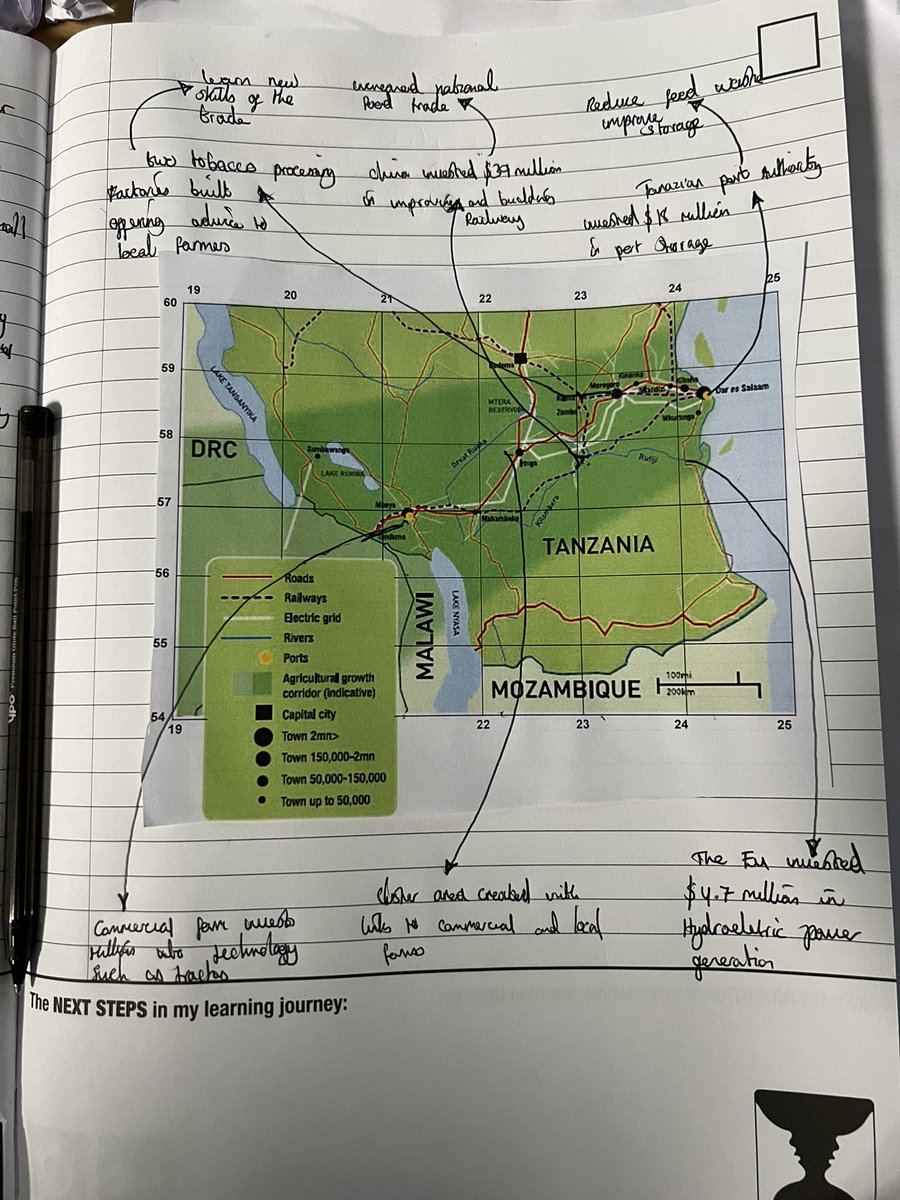 learn new
skills of the
trade
increased national
food trade
Reduce food
improve
storage
two tobacco processing
factories built
offering advice to
local farmers
china invested $39 million
in improving and building
Railway
Tanazian port Authority
invested $18 million
in port storage
19
20
21
22
23
24
25
60
59
58
57
56
55
54
LAKE TANGANYIKA
DRC
Sumbawanga
LAKE RUKWA
Mbeya
Tunduma
Makambako
Iringa
Great Ruaha
MTERA
RESERVOIR
Dodoma
Morogoro
Kibaha
Dar es Salaam
Mkuranga
Rufiji
Kilombero
TANZANIA
MALAWI
LAKE NYASA
MOZAMBIQUE
100mi
200km
Roads
Railways
Electric grid
Rivers
Ports
Agricultural growth
corridor (indicative)
Capital city
Town 2mn>
Town 150,000-2mn
Town 50,000-150,000
Town up to 50,000
19
22
23
24
25
Commercial farm invests
millions into technology
such as tractors
cluster area created with
links to commercial and local
farms
The EU invested
$4.7 million in
Hydroeletric power
generation
The NEXT STEPS in my learning journey:
YPO Premium Glide Ball Point Pen